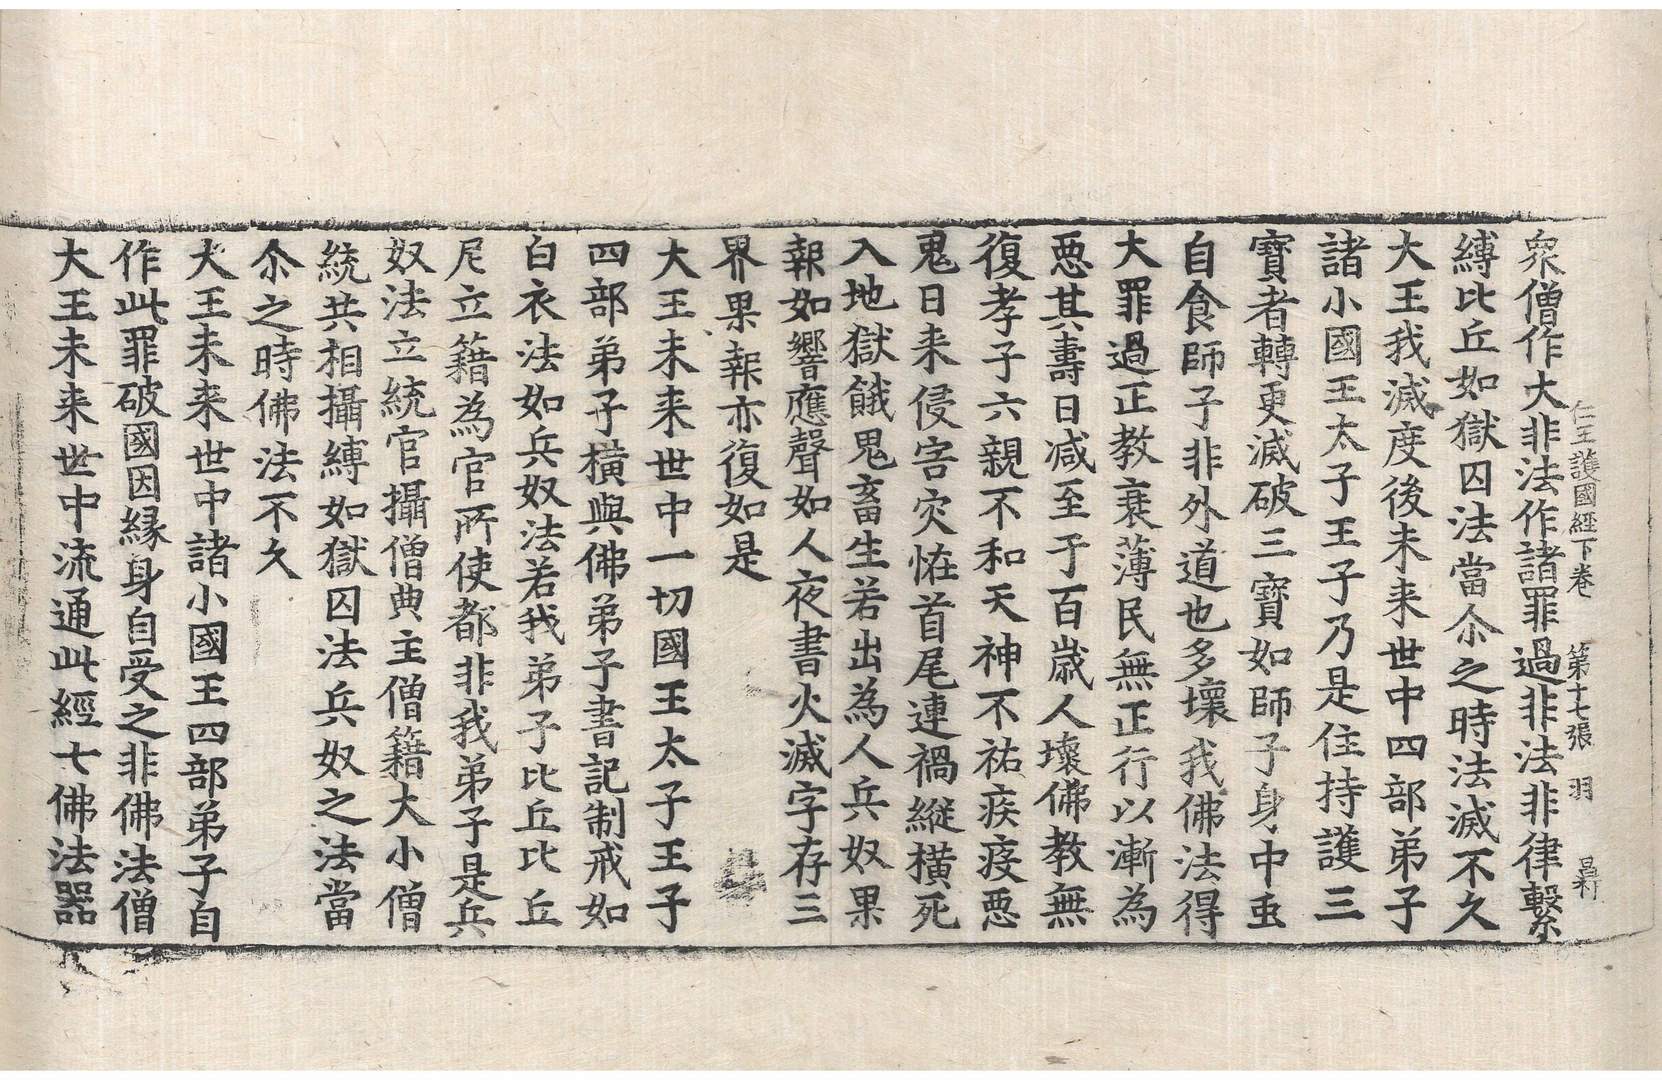 仁王護國經下卷 第十七張 羽
衆僧作大非法作諸罪過非法非律繫
縛比丘如獄囚法當尒之時法滅不久
大王我滅度後未来世中四部弟子
諸小國王太子王子乃是住持護三
寶者轉更滅破三寶如師子身中䖝
自食師子非外道也多壞我佛法得
大罪過正教衰薄民無正行以漸為
惡其壽日减至于百歲人壞佛教無
復孝子六親不和天神不祐疾疫惡
鬼日来侵害灾恠首尾連禍縱橫死
入地獄餓鬼畜生若出為人兵奴果
報如響應聲如人夜書火滅字存三
界果報亦復如是
大王未来世中一切國王太子王子
四部弟子橫與佛弟子書記制戒如
白衣法如兵奴法若我弟子比丘比丘
尼立籍為官所使都非我弟子是兵
奴法立統官攝僧典主僧籍大小僧
統共相攝縛如獄囚法兵奴之法當
尒之時佛法不久
大王未来世中諸小國王四部弟子自
作此罪破國因緣身自受之非佛法僧
大王未来世中流通此經七佛法器